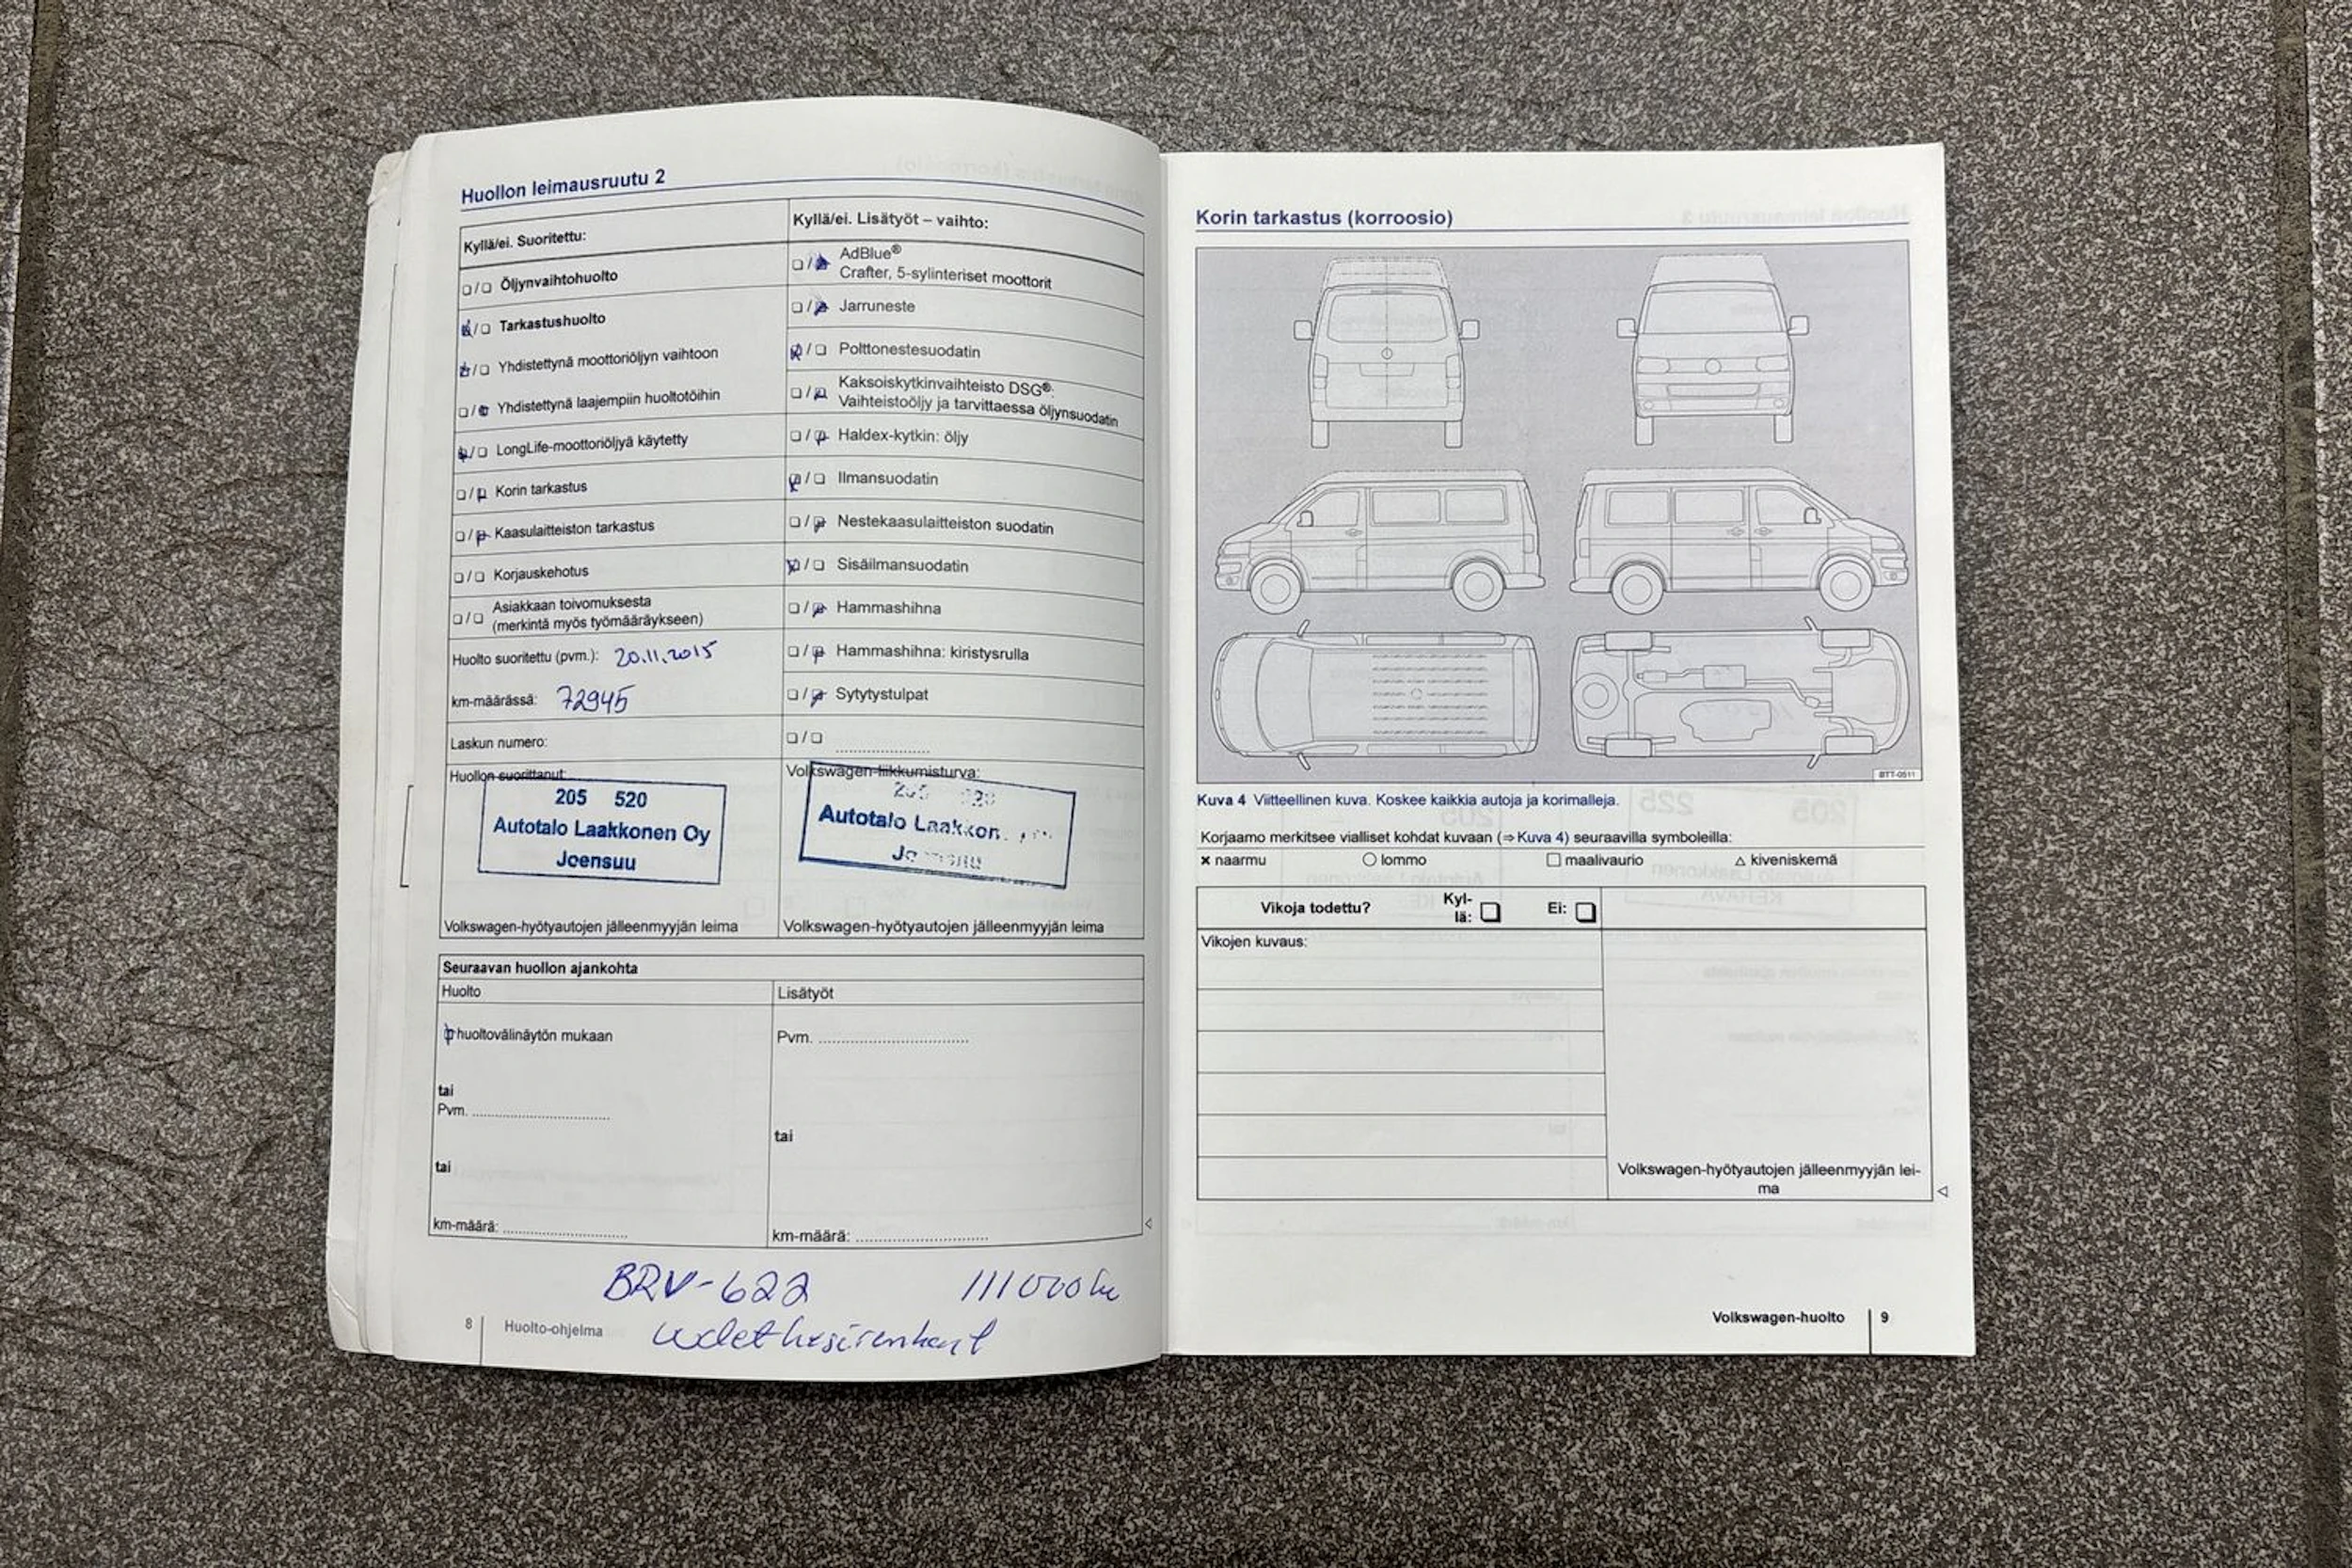 Huollon leimausruutu 2
Kyllä/ei. Suoritettu:
Öljynvaihtohuolto
Tarkastushuolto
Yhdistettynä moottoriöljyn vaihtoon
Yhdistettynä laajempiin huoltotöihin
LongLife-moottoriöljyä käytetty
Korin tarkastus
Kaasulaitteiston tarkastus
Korjauskehotus
Asiakkaan toivomuksesta
(merkintä myös työmääräykseen)
Huolto suoritettu (pvm.): 20.11.2015
km-määrässä: 72945
Laskun numero:
Huollon suorittanut:
205 520
Autotalo Laakkonen Oy
Joensuu
Volkswagen-hyötyautojen jälleenmyyjän leima
Kyllä/ei. Lisätyöt – vaihto:
AdBlue®
Crafter, 5-sylinteriset moottorit
Jarruneste
Polttonestesuodatin
Kaksoiskytkinvaihteisto DSG®:
Vaihteistoöljy ja tarvittaessa öljynsuodatin
Haldex-kytkin: öljy
Ilmansuodatin
Nestekaasulaitteiston suodatin
Sisäilmansuodatin
Hammashihna
Hammashihna: kiristysrulla
Sytytystulpat
Volkswagen-liikkumisturva:
Autotalo
Volkswagen-hyötyautojen jälleenmyyjän leima
Seuraavan huollon ajankohta
Huolto
huoltovälinäytön mukaan
tai
Pvm.
tai
km-määrä:
Lisätyöt
Pvm.
tai
km-määrä:
BRV-622 111000
8 Huolto-ohjelma
Korin tarkastus (korroosio)
BTT-0511
Kuva 4 Viitteellinen kuva. Koskee kaikkia autoja ja korimalleja.
Korjaamo merkitsee vialliset kohdat kuvaan (⇒ Kuva 4) seuraavilla symboleilla:
× naarmu ○ lommo □ maalivaurio △ kiveniskemä
Vikoja todettu? Kyl-
lä: Ei:
Vikojen kuvaus:
Volkswagen-hyötyautojen jälleenmyyjän lei-
ma
Volkswagen-huolto 9